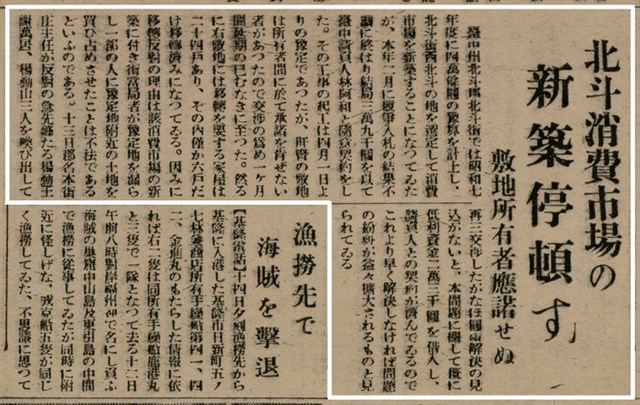 北斗消費市場の
新築停頓す
敷地所有者應諾せぬ
臺中州北斗郡北斗街では昭和七
年度に四萬餘圓の豫算を計上し、
北斗街西北斗の地を選定して消費
市場を新築することになつてゐた
が、本年二月に競爭入札の結果不
調に終はり結局三萬九千圓を以て
臺中請負人林阿和と隨意契約をし
た。その工事の起工は四月一日よ
りの豫定であつたが、町營の敷地
は所有者間に於て承諾を肯ぜない
者があつたので交渉の爲め一ヶ月
間延期の已むなきに至つた。然る
に右敷地には移轉を要する家屋は
二十四戸あり、その內僅か六戸だ
け移轉濟みになつてゐる。因みに
移轉反對の理由は該消費市場の新
築に付き街當局者が豫定地を漏ら
し一部の人に豫定地附近の土地を
買ひ占めさせたことは不法である
といふのである。十三日郡名木街
庄主任が反對の急先鋒たる楊動王
謝萬居、楊動山三人を喚び出して
再三交渉したがなほ圓滿解決の見
込がないと、本問題に關して旣に
低利資金二萬三千圓を借入し、
請負人との契約が濟んでゐるので
これより早く解決しなければ問題
の紛糾が益々擴大されるものと見
られてゐる
漁撈先で
海賊を擊退
【基隆電話】十四日夕刻漁撈先から
基隆に入港した基隆市日新町五ノ
七林兼商店所有手繰船第四一、四
二、金庭丸のもたらした情報に依
れば右二隻は同所有手繰船鹿港丸
と三隻で一隊となつて去る十二日
午前八時對岸福州沖で名にし負ふ
海賊の巢窟中山島及東引島の中間
で漁撈に從事してゐたが同時に附
近に怪しげな、戎克船五隻が同じ
く漁撈してゐた、不思議に思つて